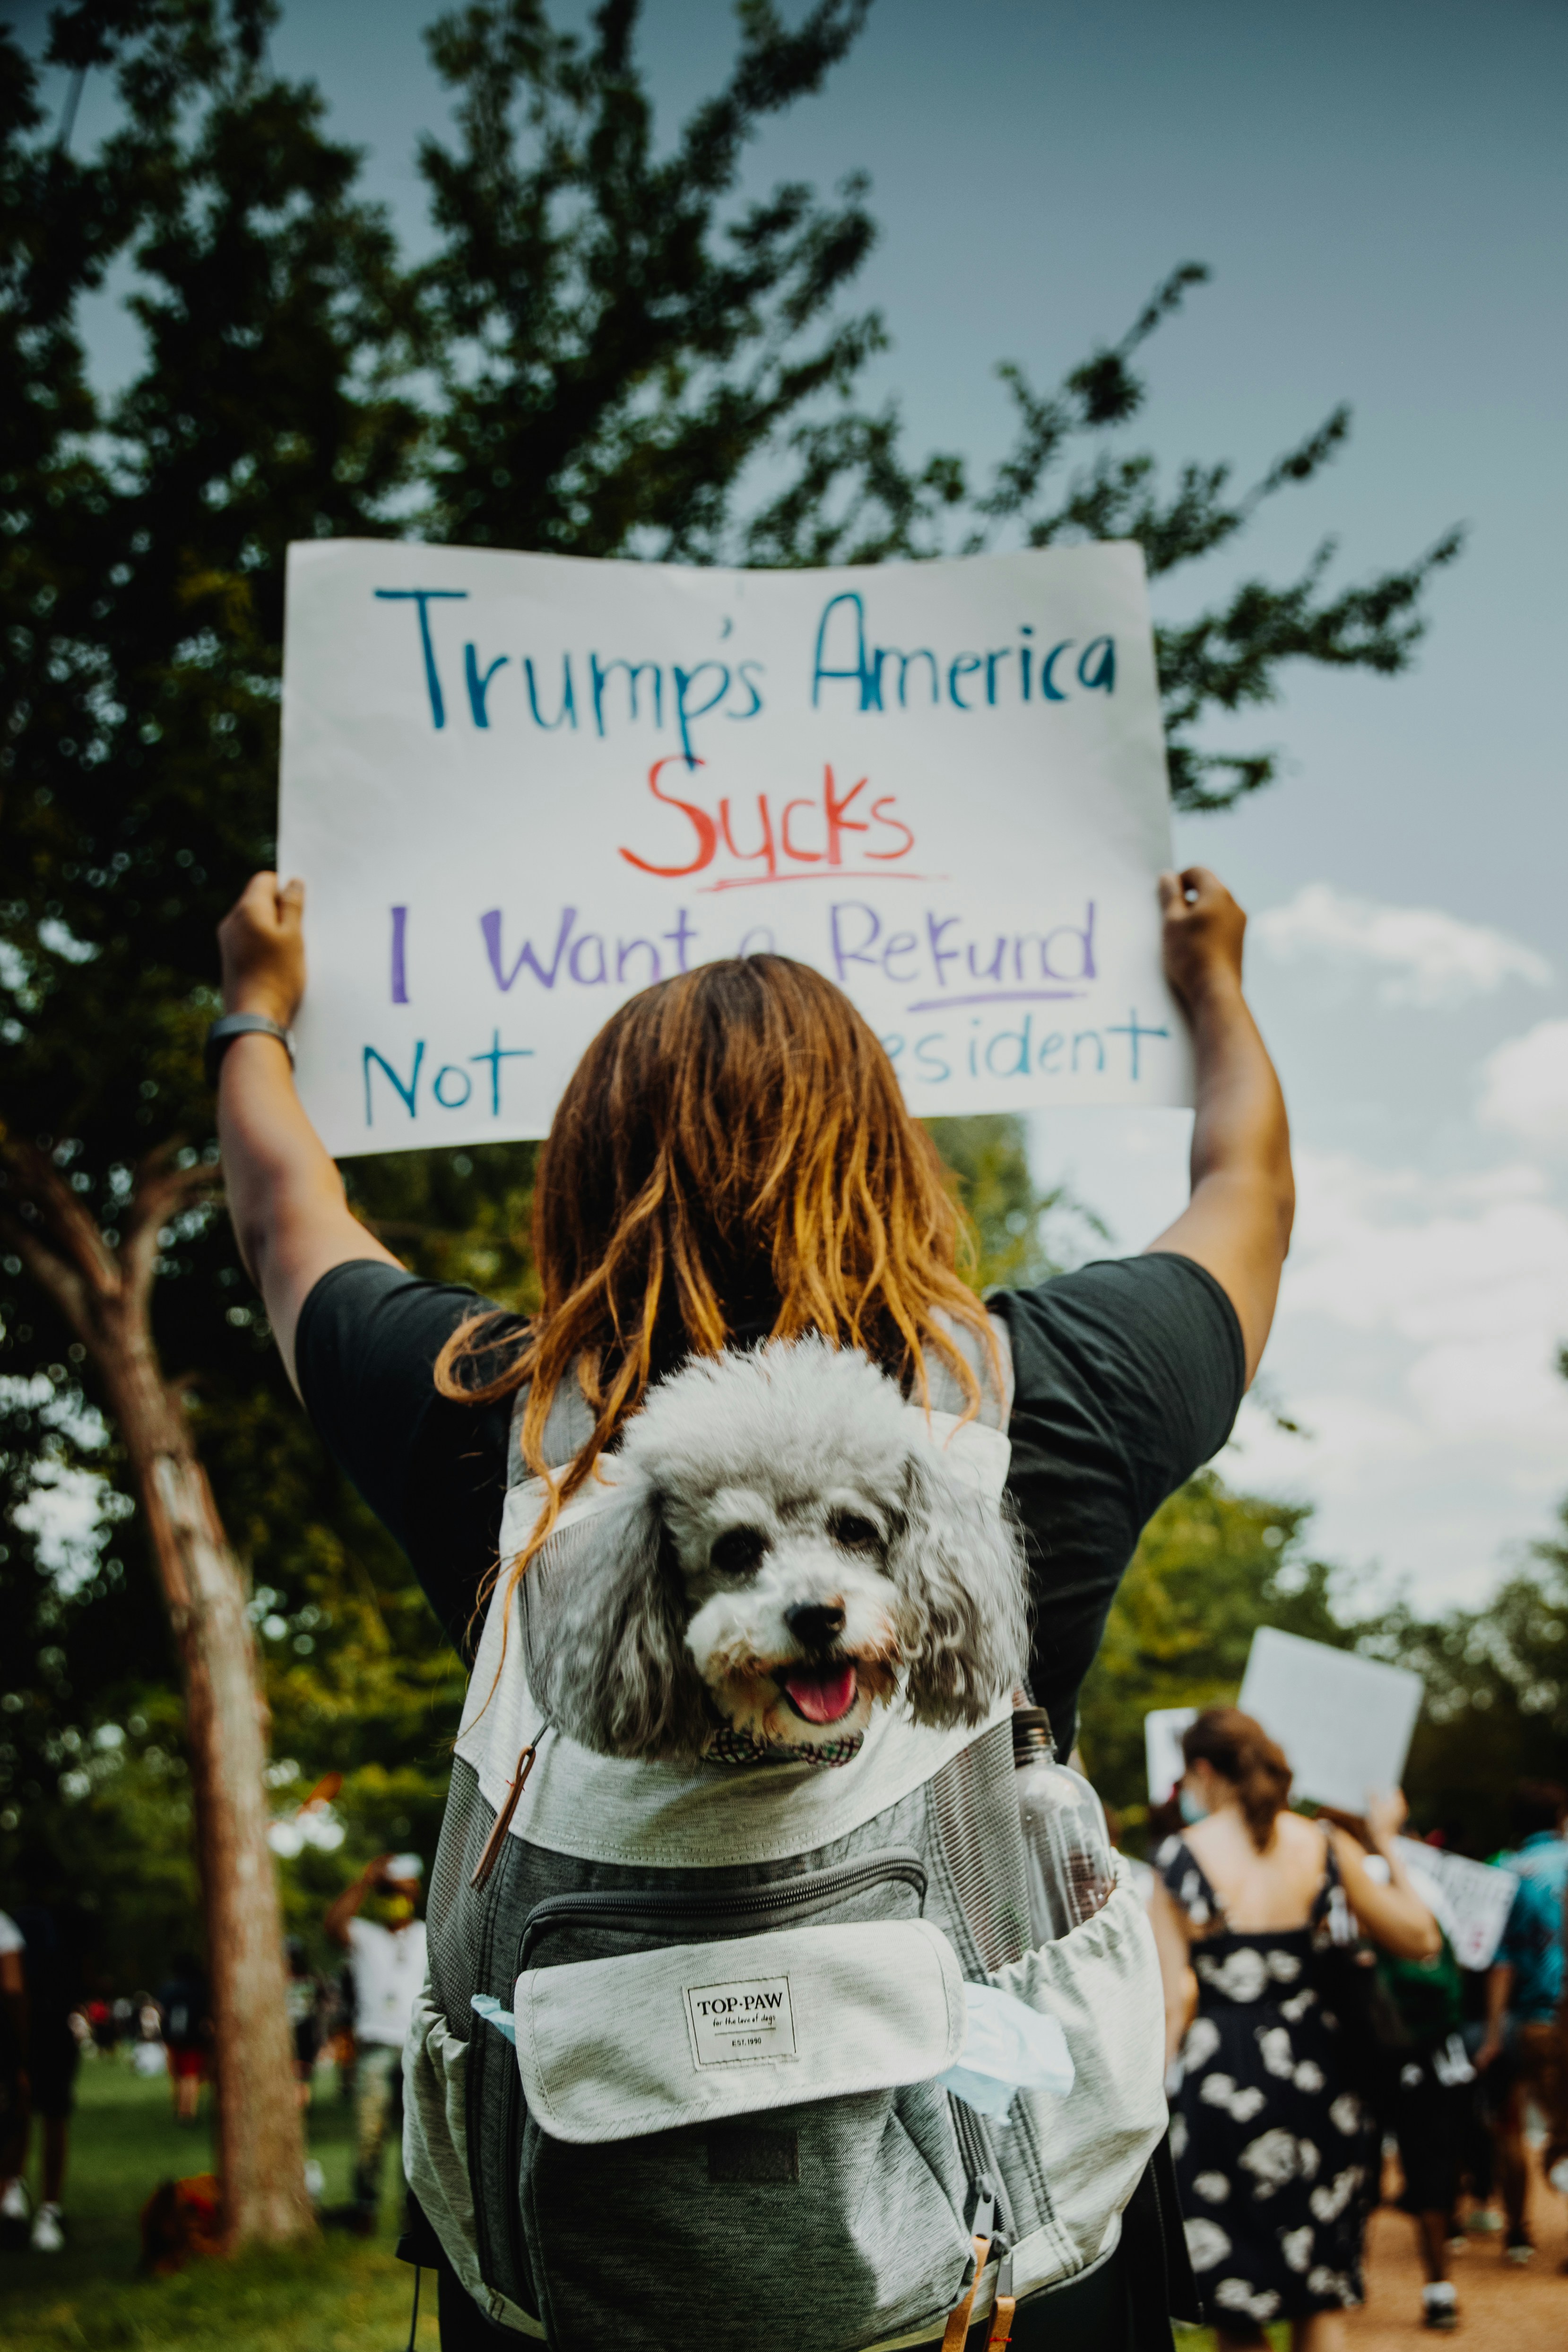 Trump's America
Sucks
I Want a Refund
Not
TOP·PAW
for the love of dogs
EST. 1990